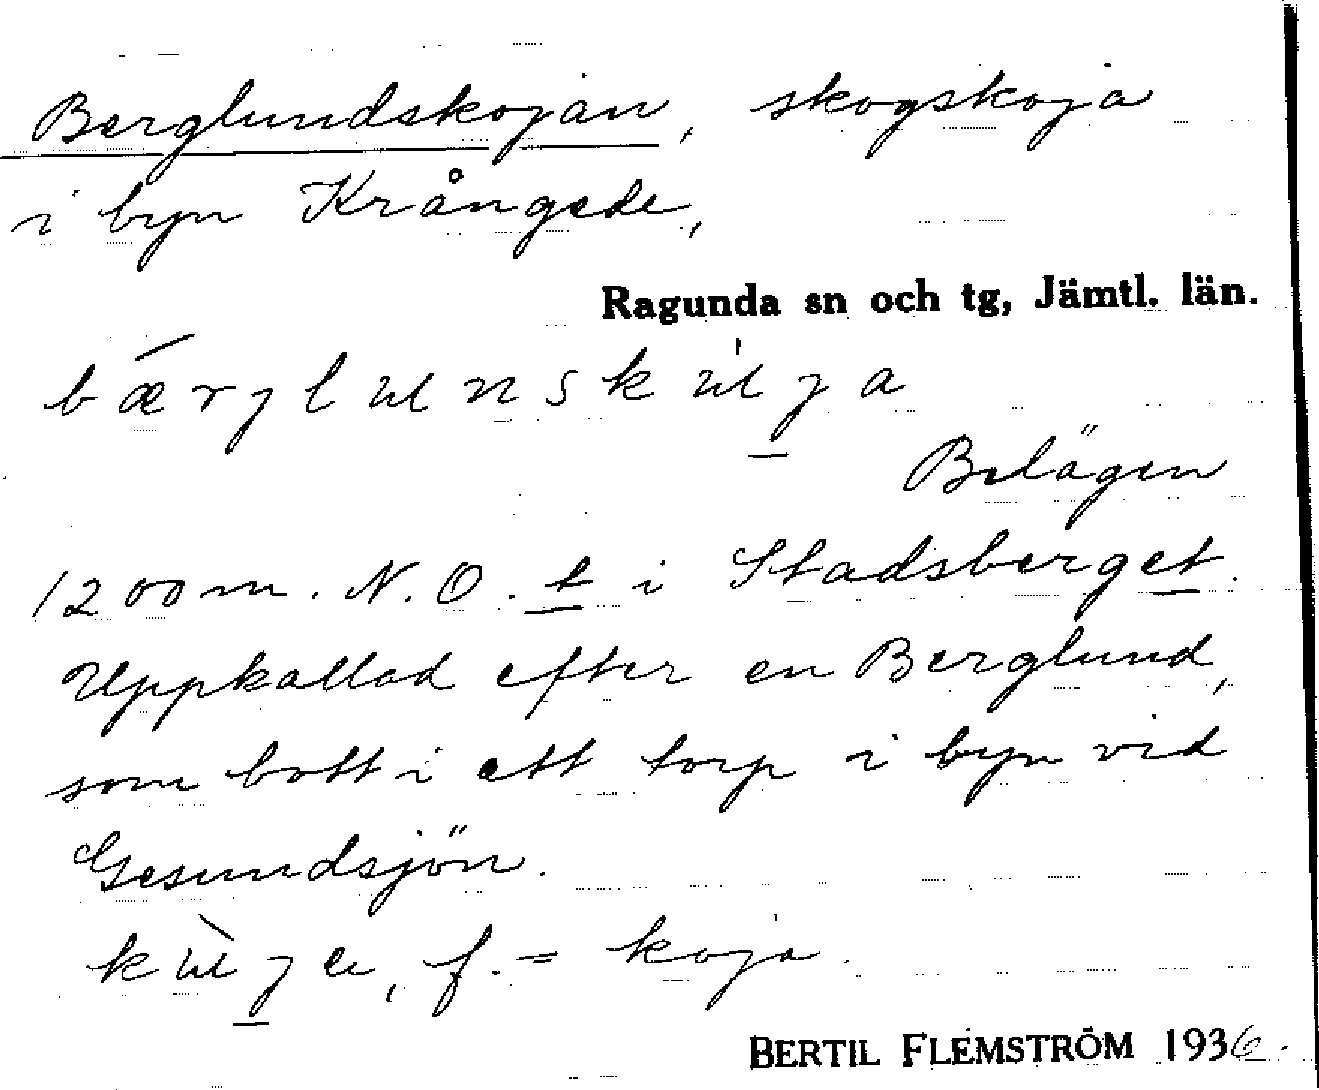 Berglundskojan, skogskoja
i byn Krångede,
Ragunda sn och tg, Jämtl. län.
Belägen
1200 m. N.O. t i Stadsberget.
Uppkallad efter en Berglund,
som bott i ett torp i byn vid
Gesundsjön.
f. = koja.
BERTIL FLEMSTRÖM 1936.